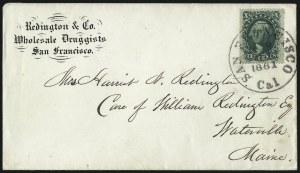 Redington & Co.
Wholesale Druggists
San Francisco.
SAN FRANCISCO
1861
Cal
Mrs Harriet W. Redington
Care of William Redington Esq
Waterville
Maine.